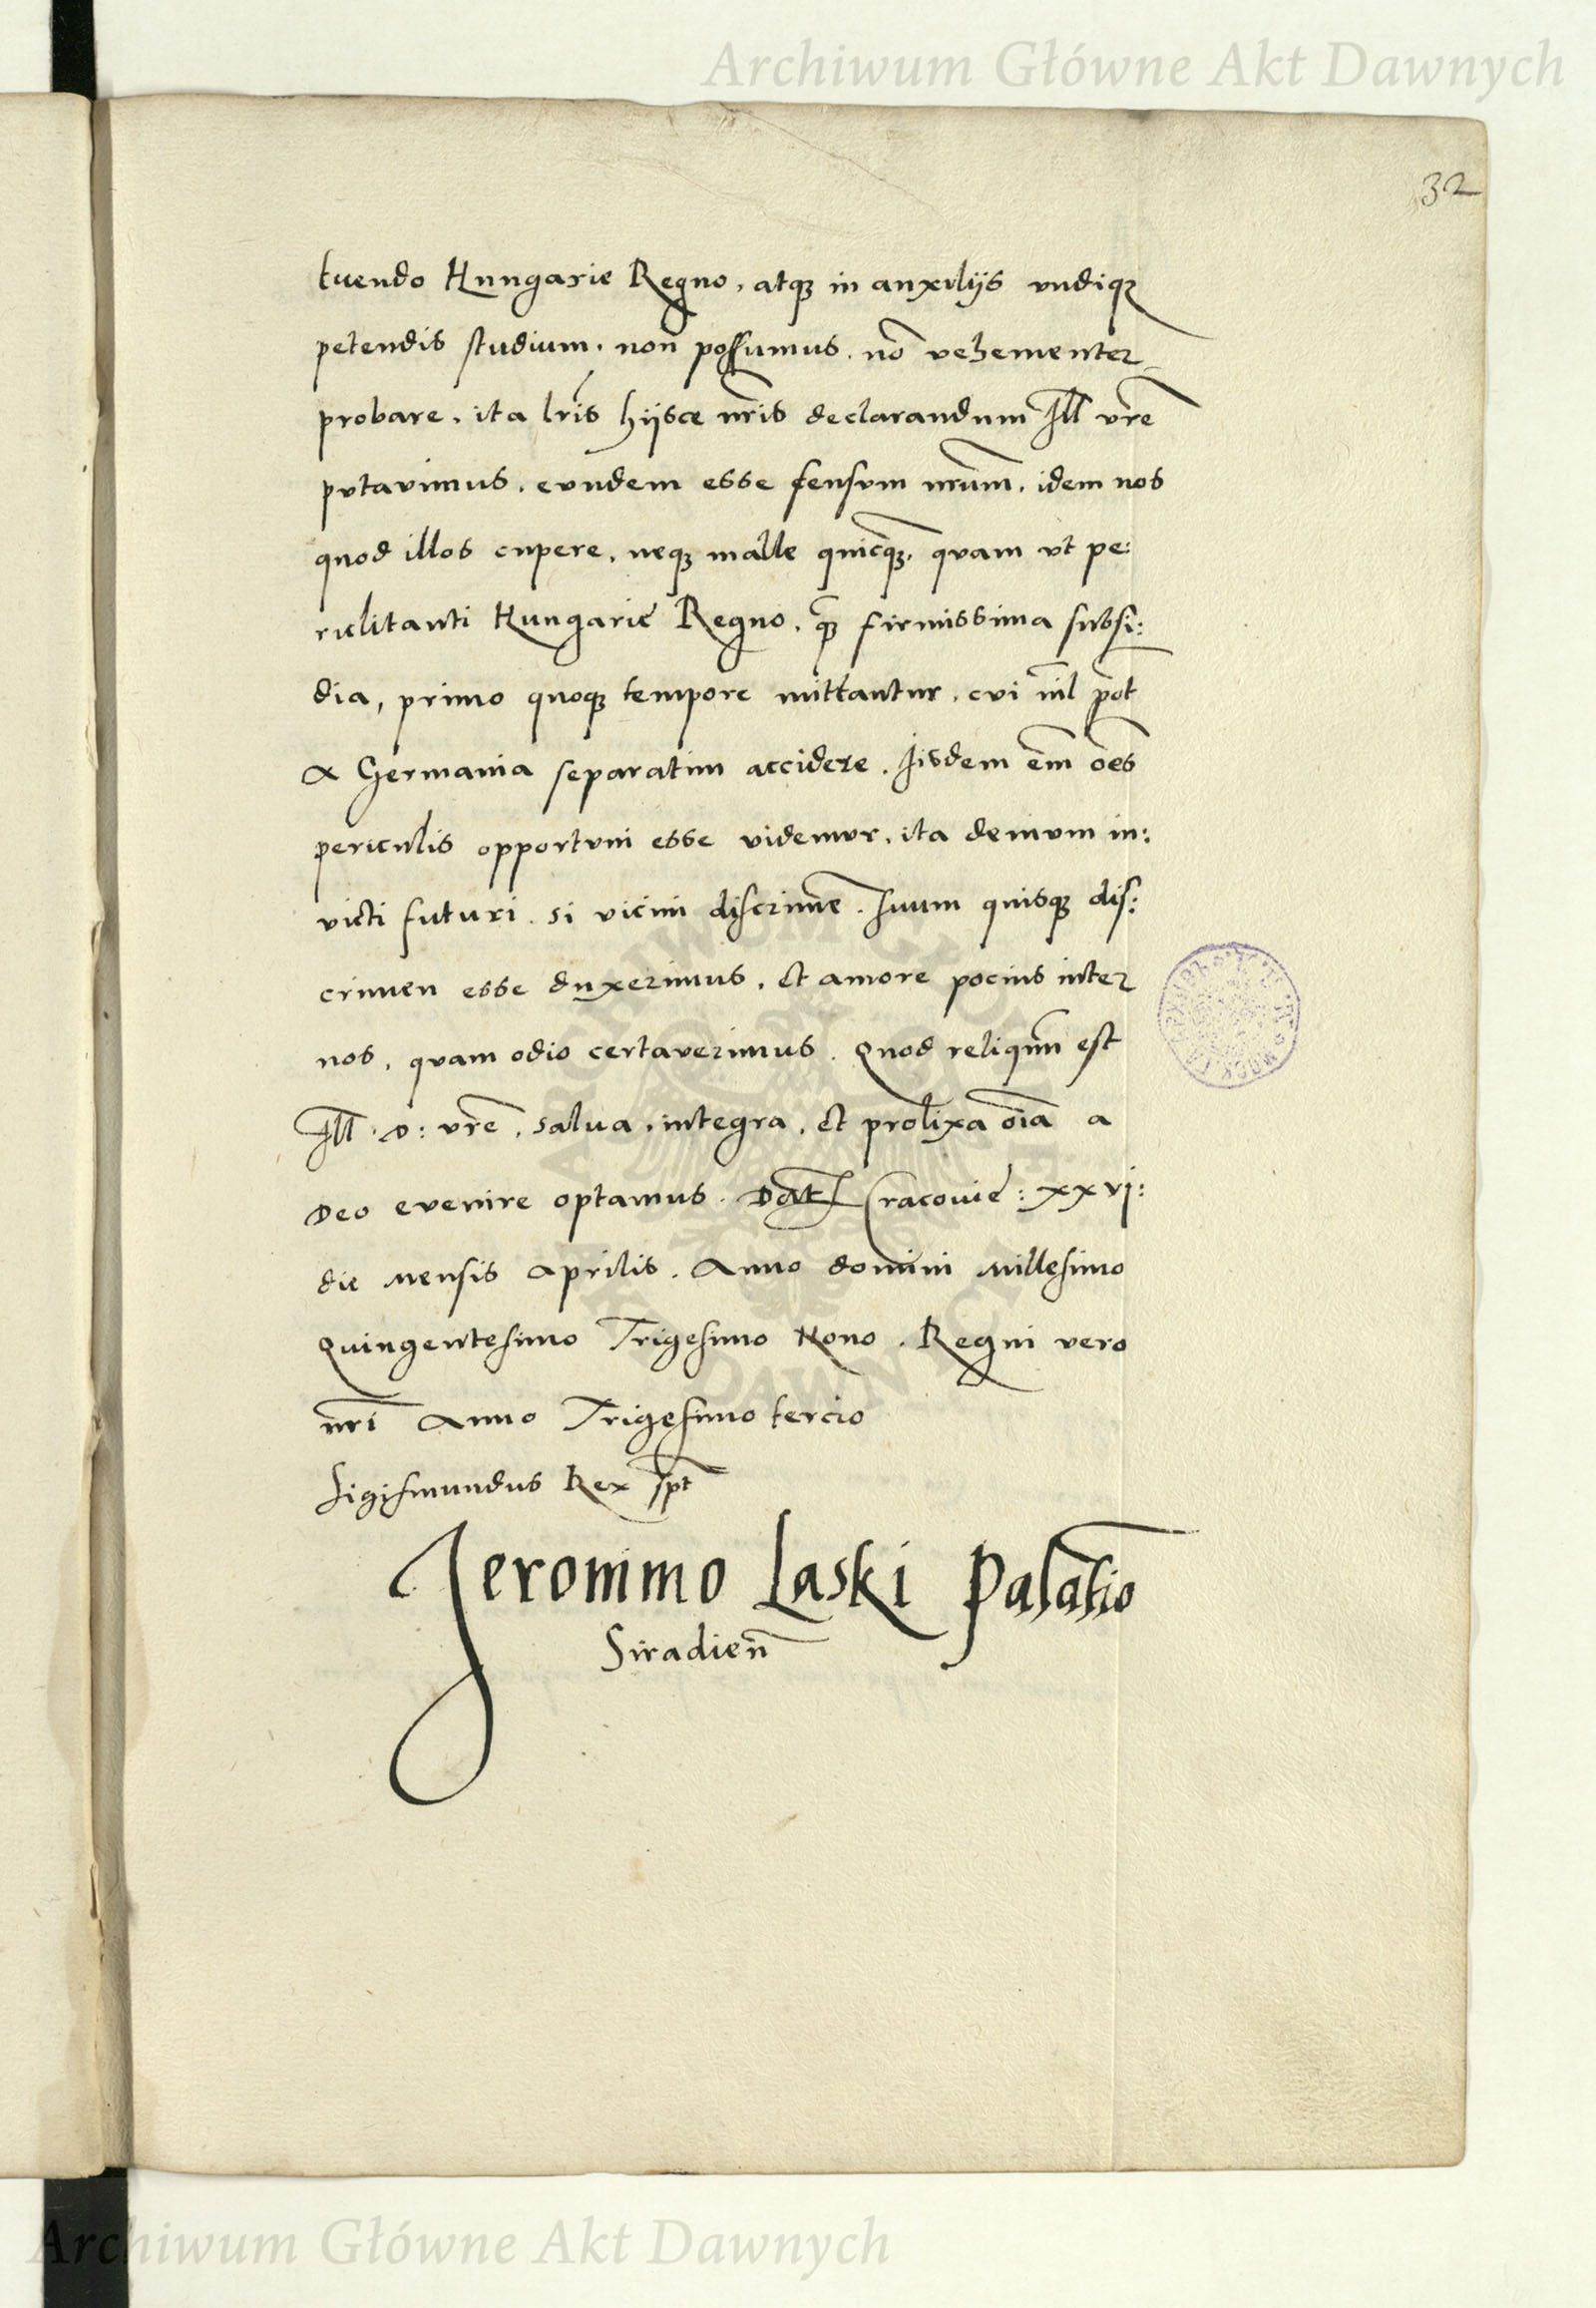 Archiwum Główne Akt Dawnych
32
tuendo Hungarie Regno, atqꝫ in auxilijs vndiqꝫ
petendis studium, non possumus, nō vehementer
probare, ita lr̄is hijsce nr̄is declarandum Ill vr̄e
putavimus, eundem esse sensum nr̄um, idem nos
quod illos cupere, neqꝫ malle quicqꝫ, quam vt pe:
riclitanti Hungarie Regno, qꝫ firmissima subsi:
dia, primo quoqꝫ tempore mittantur, cui nil pōt
a Germania separatim accidere. Iisdem em̄ oēs
periculis opportuni esse videmur, ita demum in:
victi futuri, si vicini discrimē, suum quisqꝫ dis:
crimen esse duxerimus, et amore pocius inter
nos, quam odio certaverimus. Quod reliquū est
Ill. D: vr̄e, salua, integra, et prolixa oīa a
Deo evenire optamus. Dat Cracouie: xxvj:
die mensis Aprilis. Anno domini Millesimo
Quingentesimo Trigesimo Nono. Regni vero
nr̄i Anno Trigesimo tercio
Sigismundus Rex spt
Jeronimo Laski Palatio
Siradien̄
ARCHIWUM GŁÓWNE AKT DAWNYCH
Archiwum Główne Akt Dawnych